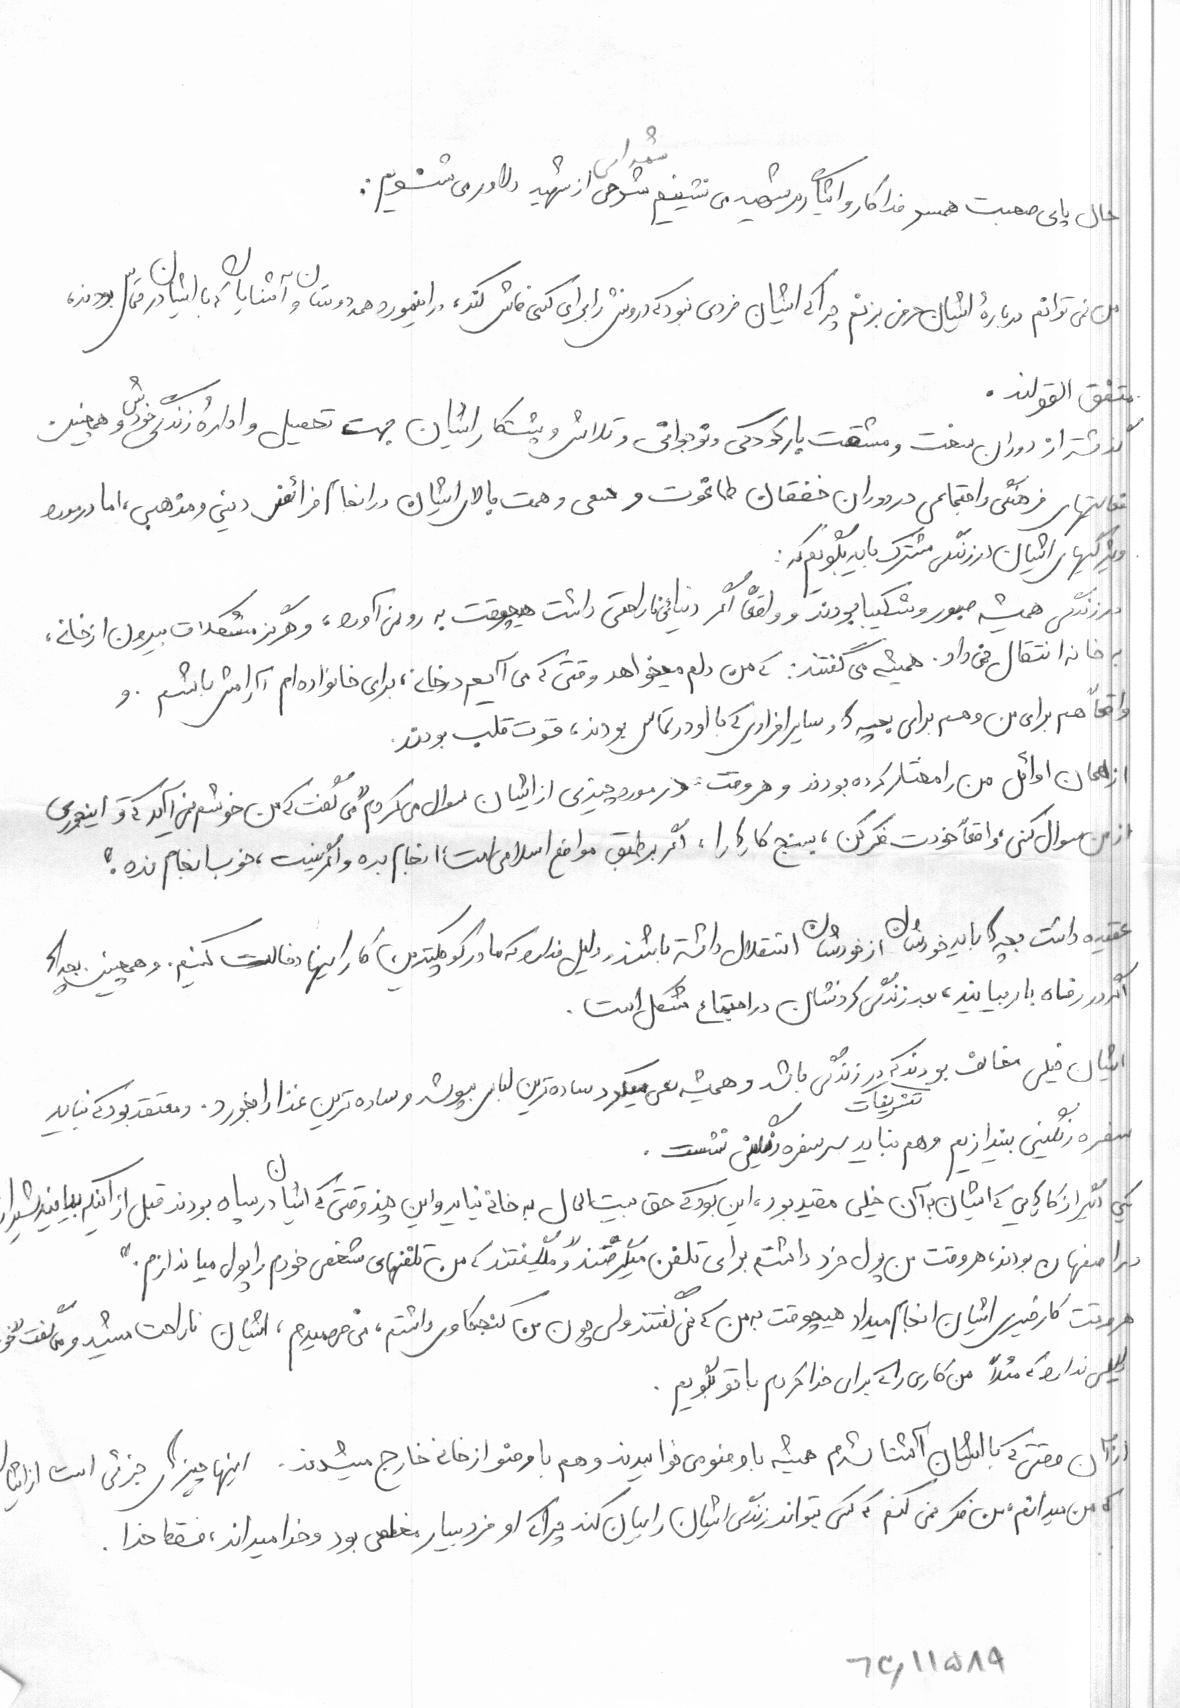 شمه‌ای
حال پای صحبت همسر فداکار و ایثارگر شهید می نشینیم شرحی از شهید دلاور می شنویم:
من نمی توانم دربارهٔ ایشان حرفی بزنم چرا که ایشان فردی نبود که درونش را برای کسی فاش کند، در اینمورد همه دوستان و آشنایان که با ایشان در تماس بودند،
متفق القولند.
گذشته از دوران سخت و مشقت بار کودکی و نوجوانی و تلاش و پشتکار ایشان جهت تحصیل و ادارهٔ زندگی خودش و همچنین
فعالیتهای فرهنگی و اجتماعی در دوران خفقان طاغوت و سعی و همت بالای ایشان در انجام فرائض دینی و مذهبی، اما در مورد
ویژگیهای ایشان در زندگی مشترک باید بگویم که:
در زندگی همیشه صبور و شکیبا بودند و واقعاً اگر دنیائی ناراحتی داشت هیچوقت به رو نمی آورد، و هرگز مشکلات بیرون از خانه،
به خانه انتقال نمی داد. همیشه می گفتند: که من دلم میخواهد وقتی که می آیم در خانه، برای خانواده ام آرامش باشم. و
واقعاً هم برای من و هم برای بچه ها و سایر افرادی که با او در تماس بودند، قوت قلب بودند.
از همان اوائل من را مختار کرده بودند و هر وقت در مورد چیزی از ایشان سوال می کردم می گفت که من خوشم نمی آید که تو اینجوری
از من سوال کنی، واقعاً خودت فکر کن، بسنج کارها را، اگر بر طبق مواضع اسلامی است، انجام بده و اگر نیست، خوب انجام نده."
عقیده داشت بچه ها باید خودشان از خودشان استقلال داشته باشند، دلیل ندارد که ما در کوچکترین کار اینها دخالت کنیم. و همچنین بچه ها
اگر در رفاه بار بیایند، بعد زندگی کردنشان در اجتماع مشکل است.
ایشان خیلی مخالف بودند که در زندگی تشریفات باشد و همیشه سعی میکرد ساده ترین لباس بپوشد و ساده ترین غذا را بخورد. و معتقد بود که نباید
سفره رنگینی بیندازیم و هم نباید سر سفره رنگین نشست.
یکی دیگر از کارهایی که ایشان به آن خیلی مقید بود، این بود که حق بیت المال به خانه نیاید و این چند وقتی که ایشان در سپاه بودند قبل از آنکه بیایند شیراز
در اصفهان بودند، هر وقت من پول خرد داشتم برای تلفن میگرفتند و میگفتند که من تلفنهای شخصی خودم را پول میاندازم."
هر وقت کار خیری ایشان انجام میداد هیچوقت به من که نمی گفتند ولی چون من کنجکاوی داشتم، می فهمیدم، ایشان ناراحت میشد و می گفت
دلیلی ندارد که مثلاً من کاری را که برای خدا کردم با تو بگویم.
از آن وقتی که با ایشان آشنا شدم همیشه با وضو می خوابیدند و هم با وضو از خانه خارج میشدند. اینها چیزهای جزئی است از ایشان
که من میدانم، من فکر نمی کنم که کسی بتواند زندگی ایشان را بیان کند چرا که او فرد بسیار مخلصی بود و خدا میداند، فقط خدا.